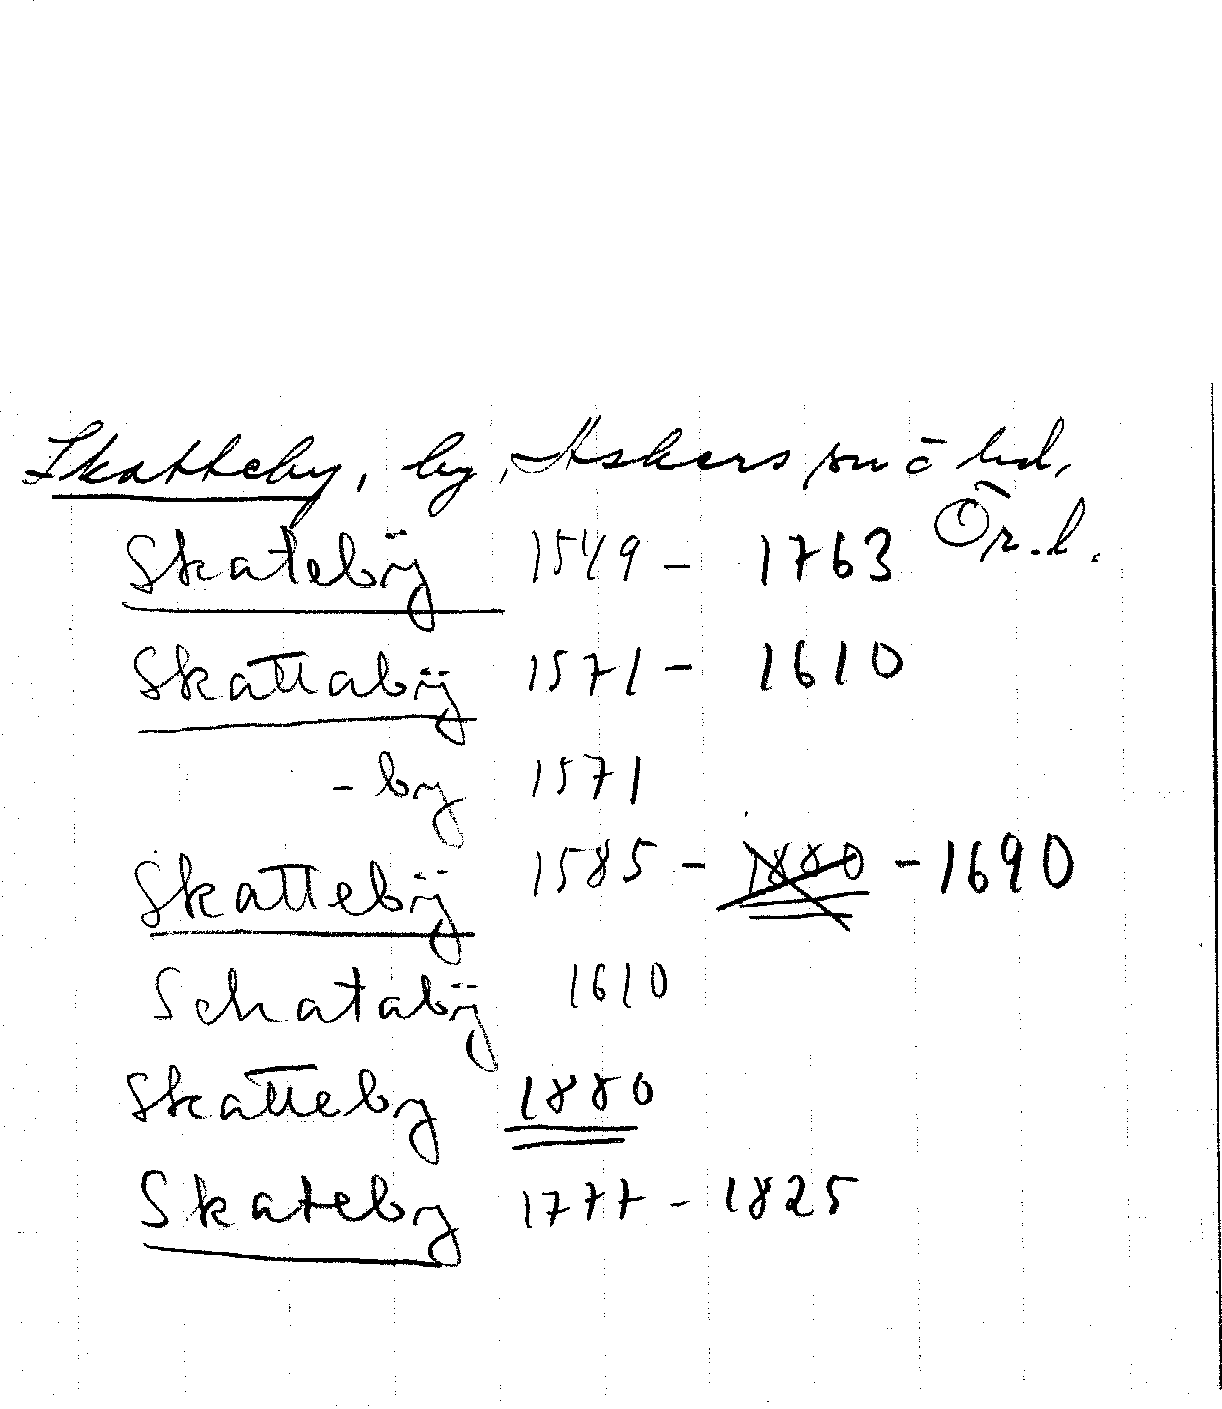 Skatteby, by, Askers sn ō hd,
Ör. l.
Skatebÿ 1549 - 1763
Skattabÿ 1571 - 1610
- by 1571
Skattebÿ 1585 - 1880 - 1690
Schatabÿ 1610
Skatteby 1880
Skateby 1777 - 1825